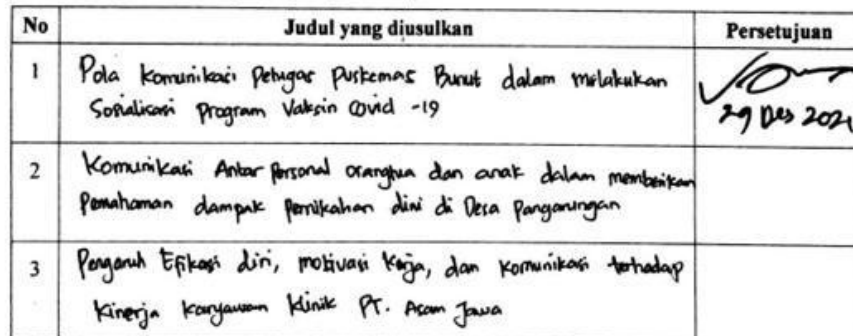 No Judul yang diusulkan Persetujuan
1 Pola Komunikasi Petugas Puskemas Bunut dalam melakukan
Sosialisasi Program Vaksin Covid -19
29 Des 2021
2 Komunikasi Antar Personal orangtua dan anak dalam memberikan
Pemahaman dampak Pernikahan dini di Desa Pangarungan
3 Pengaruh Efikasi diri, motivasi Kerja, dan Komunikasi terhadap
Kinerja Karyawan Klinik PT. Asam Jawa